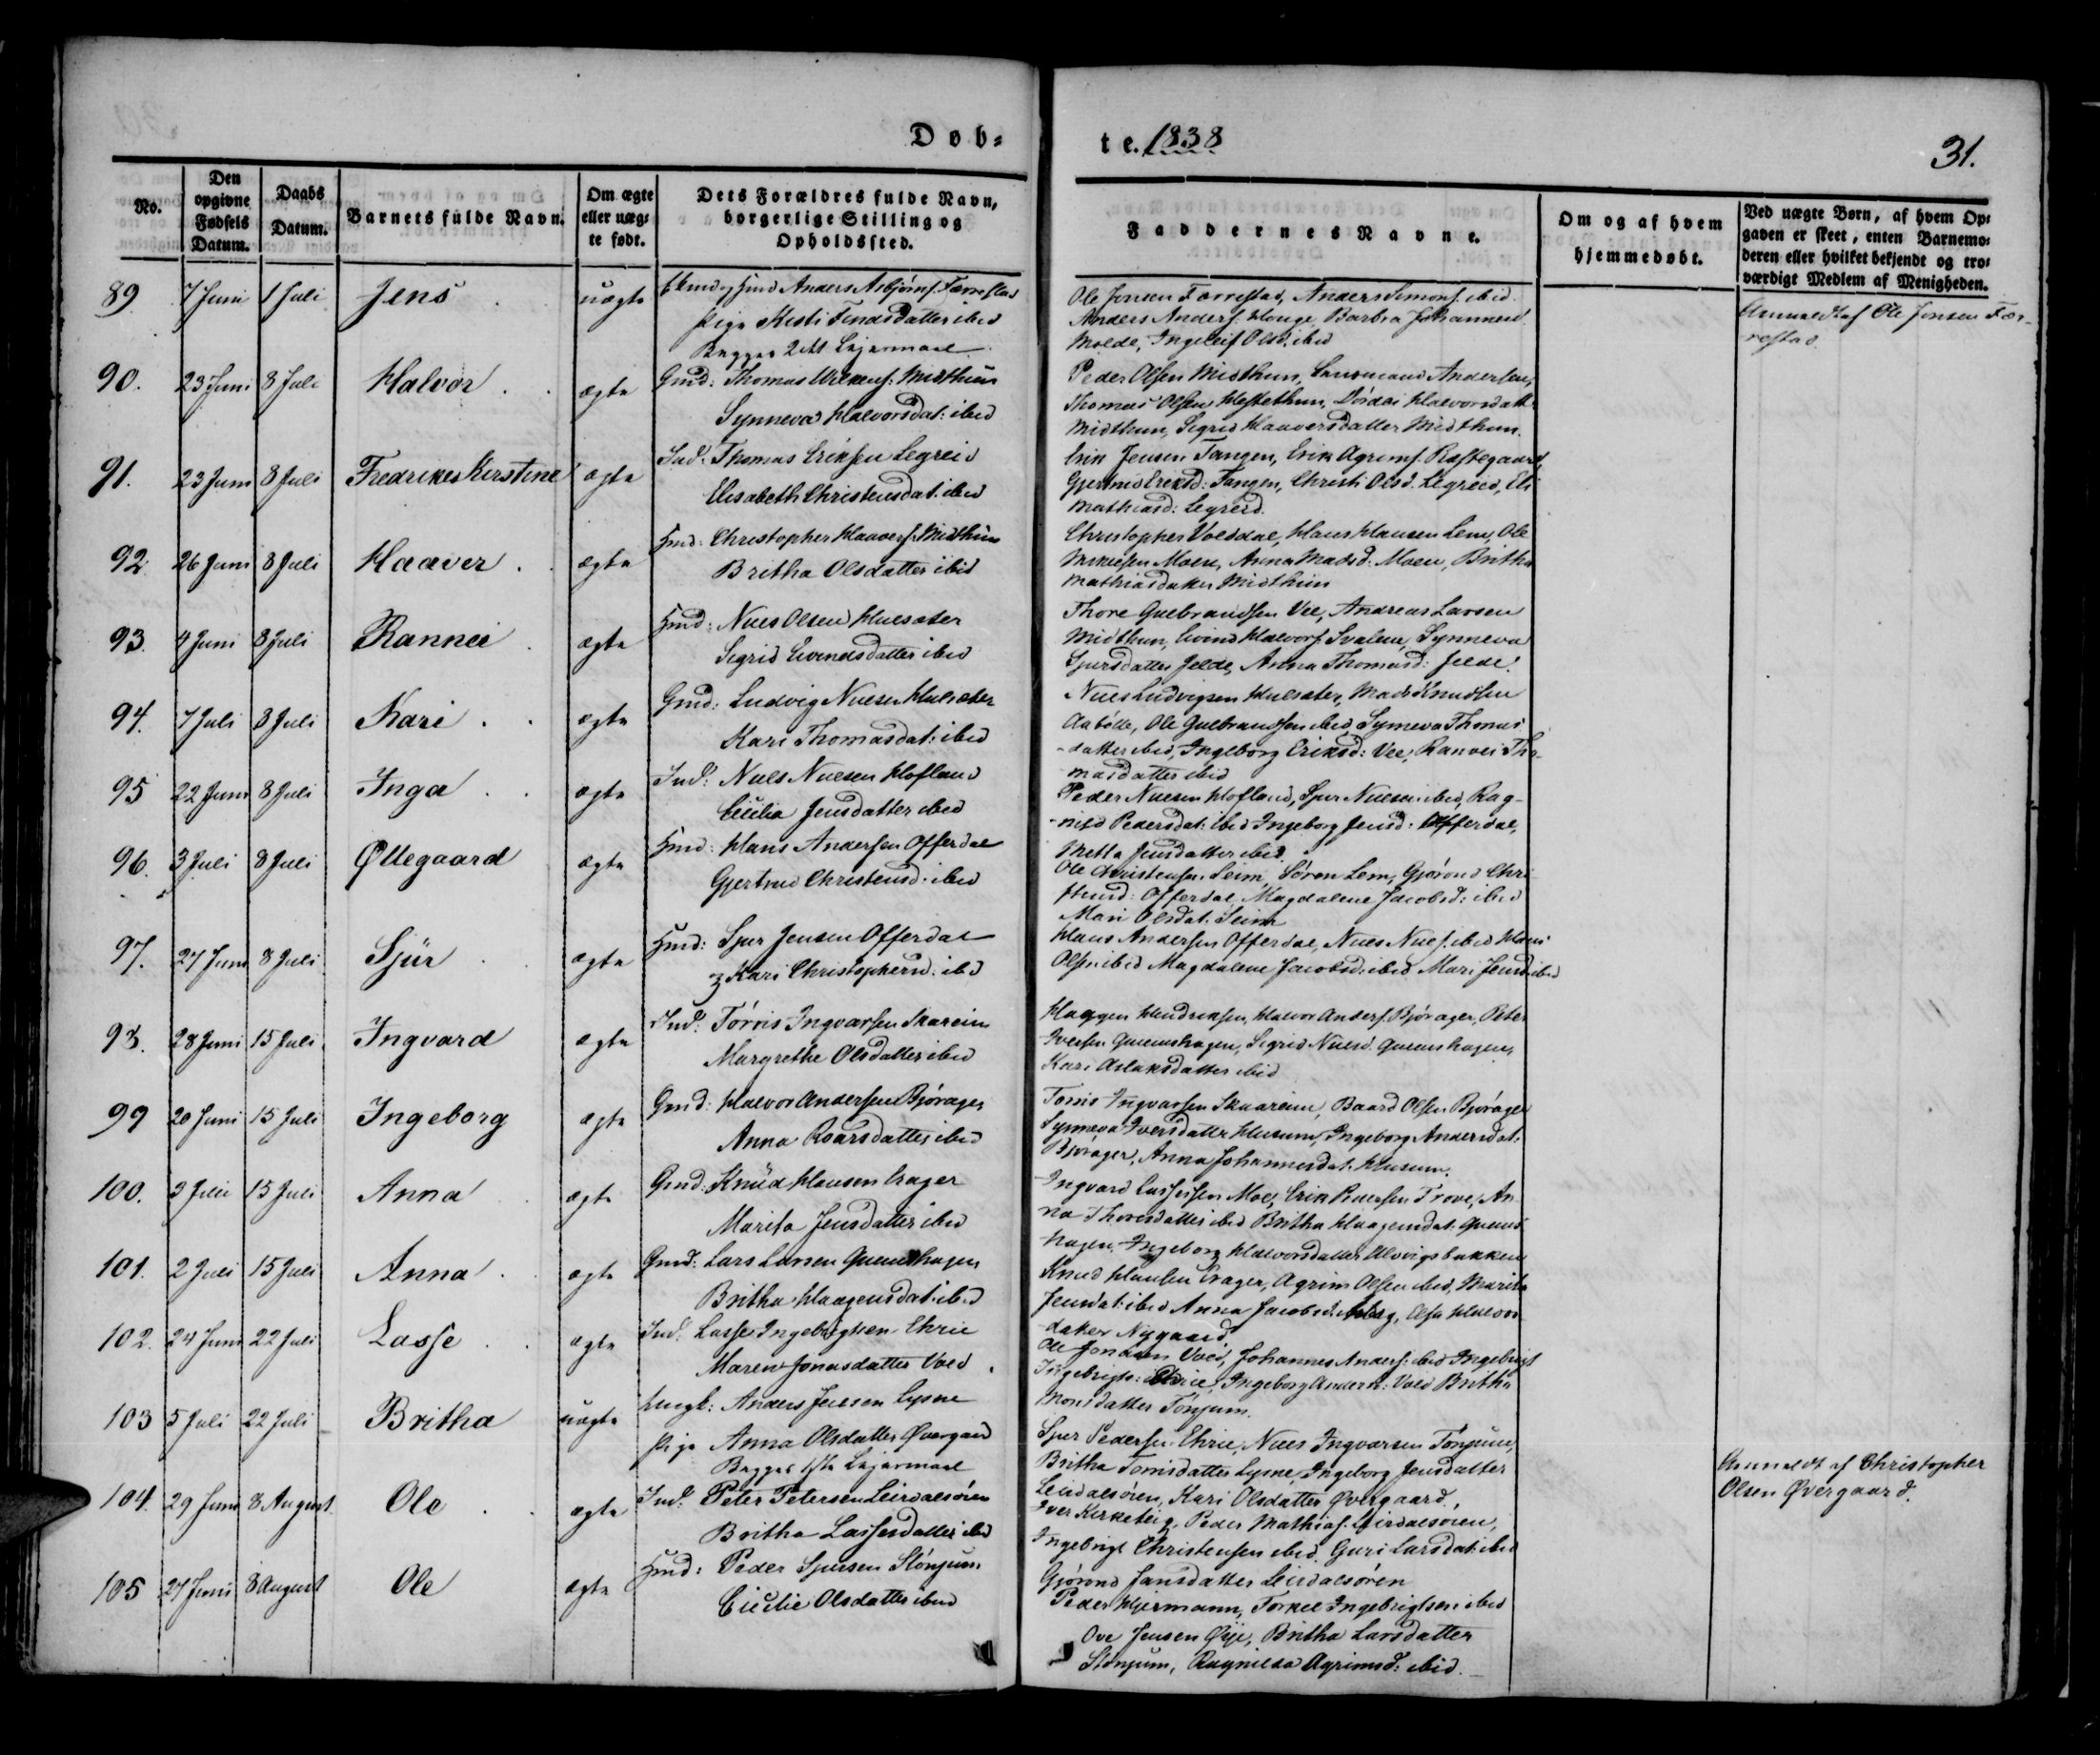 Døb-
te. 1838
31.
No.
Den opgivne Fødsels Datum.
Daabs Datum.
Barnets fulde Navn.
Om ægte eller uægte født.
Dets Forældres fulde Navn, borgerlige Stilling og Opholdssted.
Faddernes Navne.
Om og af hvem hjemmedøbt.
Ved uægte Børn, af hvem Opgaven er skeet, enten Barnemoderen eller hvilket bekjendt og troværdigt Medlem af Menigheden.
89. 7 Juni 1 Juli Jens uægte
Anders Asbjørns. Færrestad
Pige Kisti Findsdatter ibid
Begges 2det Leiermaal
Ole Jensen Færrestad, Anders Simons. ibid
Anders Anders. Hauge, Barbra Johannesd
Molde, Ingeleif Olsd. ibid
Anmeldt af Ole Jensen Fær-
restad.
90. 23 Juni 8 Juli Halvor ægte
Gmd: Thomas Midthun
Synneva Halvorsdat: ibid
Peder Olsen Midthun, Andersen,
Thomas Olsen Hestethun, Halvorsdatt
Midthun, Sigrid Haaversdatter Midthun.
91. 23 Juni 8 Juli Fredrikes Kirstine ægte
Ind: Thomas Eriksen Legreid
Elisabeth Christensdat: ibid
Erik Jensen Tangen, Erik Agrims. Rastegaard,
Gjertrud Eriksd: Tangen, Christi Olsd. Legreid, Eli
Mathiasd: Legreid.
92. 26 Juni 8 Juli Haaver ægte
Hmd: Christopher Haavers. Midthun
Britha Olsdatter ibid
Christopher Volddal, Hans Hansen Lem, Ole
Moen, Anna Madsd. Moen, Britha
Mathiasdatter Midthun
93. 4 Juni 8 Juli Rannei ægte
Hmd: Niels Olsen Hulsæter
Sigrid Eivindsdatter ibid
Thore Gulbrandsen Vee, Andreas Larsen
Midthun, Eivind Halvors. Svalem, Synneva
Sjursdatter Jelde, Anna Thomasd: Jelde.
94. 7 Juli 8 Juli Kari ægte
Gmd: Ludvig Nielsen Hulsæter
Kari Thomasdat: ibid
Niels Ludvigsen Hulsæter, Mads Knudsen
Aabølle, Ole Gulbrandsen ibid, Synneva Thomas
-datter ibid, Ingeborg Eriksd: Vee, Rannei Tho-
masdatter ibid
95 22 Juni 8 Juli Inga ægte
Ind: Niels Nielsen Hofland
Cicilia Jensdatter ibid
Peder Nielsen Hofland, Sjur Nielsen ibid, Rag-
-nild Pedersdat: ibid Ingeborg Jensd: Offerdal,
Metta Jensdatter ibid.
96. 3 Juli 8 Juli Øllegaard ægte
Hmd: Hans Andersen Offerdal
Gjertrud Christensd: ibid
Ole Christensen Seim, Søren Lem, Gjørond Chri
stensd: Offerdal, Magdalene Jacobsd: ibid
Mari Olsdat: Seim
97. 27 Juni 8 Juli Sjur ægte
Hmd: Sjur Jensen Offerdal
Kari Christophersd: ibid
Hans Andersen Offerdal, Niels Niels. ibid Hans
Olsen ibid Magdalene Jacobsd: ibid Mari Jensd: ibid
98. 28 Juni 15 Juli Ingvard ægte
Ind: Tørris Ingvarsen Skareim
Margrethe Olsdatter ibid
Haagen Hendriksen, Halvor Anders. Bjørager, Peter
Iversen Quamshagen, Sigrid Nielsd. Quamshagen,
Kari Aslaksdatter ibid
99 20 Juni 15 Juli Ingeborg ægte
Gmd: Halvor Andersen Bjørager
Anna Roarsdatter ibid
Torris Ingvarsen Skaareim, Baard Olsen Bjørager
Synneva Iversdatter Husum, Ingeborg Andersdat:
Bjørager, Anna Johannesdat: Husum.
100. 3 Juli 15 Juli Anna ægte
Gmd: Knud Hansen Crager
Marita Jensdatter ibid
Ingvard Lassesen Moe, Erik Pedersen Trove, An
na Thoresdatter ibid Britha Haagensdat: Quams-
hagen, Ingeborg Halvorsdatter Alvigsbakken
101. 2 Juli 15 Juli Anna ægte
Gmd: Lars Larsen Quamshagen
Britha Haagensdat: ibid
Knud Hansen Crager, Agrim Olsen ibid, Marita
Jensdat: ibid Anna Jacobsd: Halvors
datter Nygaard.
102. 24 Juni 22 Juli Lasse ægte
Ind: Lasse Ingebrigtsen Ehrie
Maren Jonasdatter Vold
Ole Jonasen Vold, Johannes Anders. ibid Ingebrigt
Ingebrigts: Ehrie, Ingeborg Andersd: Vold Britha
Monsdatter Tønjum.
103 5 Juli 22 Juli Britha uægte
Ungk: Anders Jensen Lysne
Pige Anna Olsdatter Øvergaard
Begges 1ste Leiermaal
Sjur Pedersen Ehrie, Niels Ingvarsen Tønjum,
Britha Torrisdatter Lysne, Ingeborg Jensdatter
Leirdalsøren, Kari Olsdatter Øvergaard.
Anmeldt af Christopher
Olsen Øvergaard.
104. 29 Juni 8 August Ole ægte
Ind: Peter Petersen Leirdalsøren
Britha Lassesdatter ibid
Iver Kirketeig, Peder Mathias. Leirdalsøren,
Ingebrigt Christensen ibid, Guri Larsdat: ibid
Gjørond Jansdatter Leirdalsøren
105 27 Juni 8 August Ole ægte
Hmd: Peder Sjursen Stønjum
Cicilie Olsdatter ibid
Peder Hjermann, Torkel Ingebrigtsen ibid
Ove Jensen Øije, Britha Larsdatter
Stønjum, Ragnilda Agrimsd: ibid.